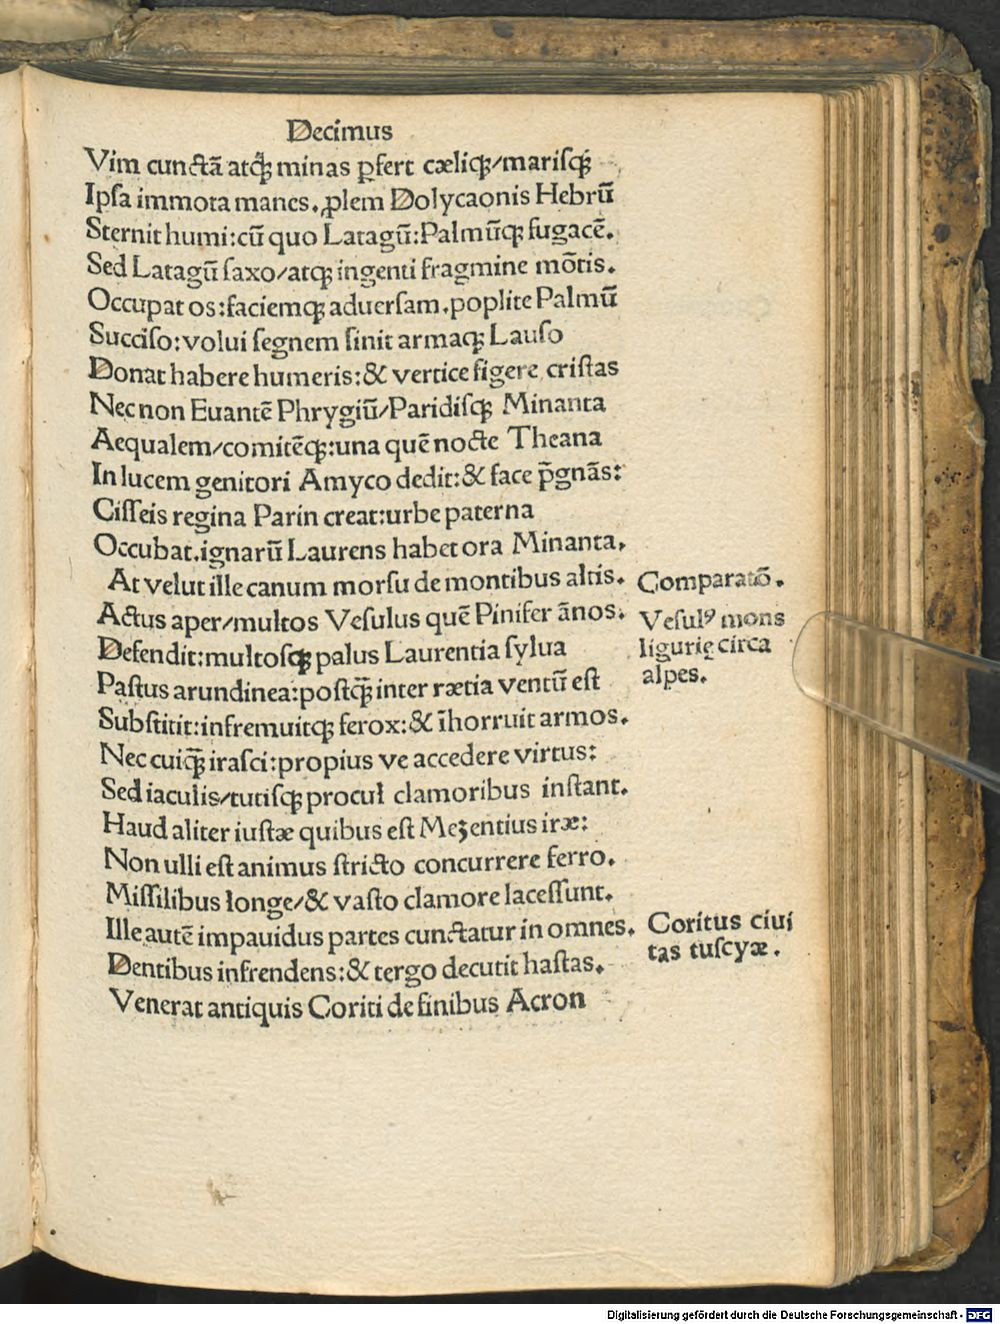 Decimus
Vim cunctā atq̃ꝫ minas ꝑfert cæliqꝫ/marisqꝫ
Ipſa immota manes. ꝓlem Dolycaonis Hebrū
Sternit humi: cū quo Latagū: Palmūqꝫ fugacē.
Sed Latagū ſaxo/atqꝫ ingenti fragmine mōtis.
Occupat os: faciemqꝫ aduerſam. poplite Palmū
Succiſo: volui ſegnem ſinit armaqꝫ Lauſo
Donat habere humeris: & vertice figere criſtas
Nec non Euantē Phrygiū/Paridiſqꝫ Minanta
Aequalem/comitēqꝫ: una quē nocte Theana
In lucem genitori Amyco dedit: & face p̄gnās:
Ciſſeis regina Parin creat: urbe paterna
Occubat. ignarū Laurens habet ora Minanta.
At velut ille canum morſu de montibus altis.
Actus aper/multos Veſulus quē Pinifer ānos.
Defendit: multoſqꝫ palus Laurentia ſylua
Paſtus arundinea: poſtq̄ꝫ inter rætia ventū eſt
Subſtitit: infremuitqꝫ ferox: & īhorruit armos.
Nec cuiq̄ꝫ iraſci: propius ve accedere virtus:
Sed iaculis/tutiſqꝫ procul clamoribus inſtant.
Haud aliter iuſtæ quibus eſt Meȝentius iræ:
Non ulli eſt animus ſtricto concurrere ferro.
Miſſilibus longe/& vaſto clamore laceſſunt.
Ille autē impauidus partes cunctatur in omnes.
Dentibus infrendens: & tergo decutit haſtas.
Venerat antiquis Coriti de finibus Acron
Comparatō.
Veſulꝰ mons
ligurię circa
alpes.
Coritus ciui
tas tuſcyæ.
Digitalisierung gefördert durch die Deutsche Forschungsgemeinschaft - DFG